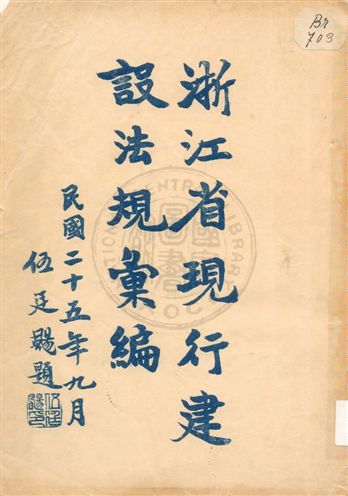 浙江省現行建
設法規彙編
民國二十五年九月
伍廷颺題
Br
703